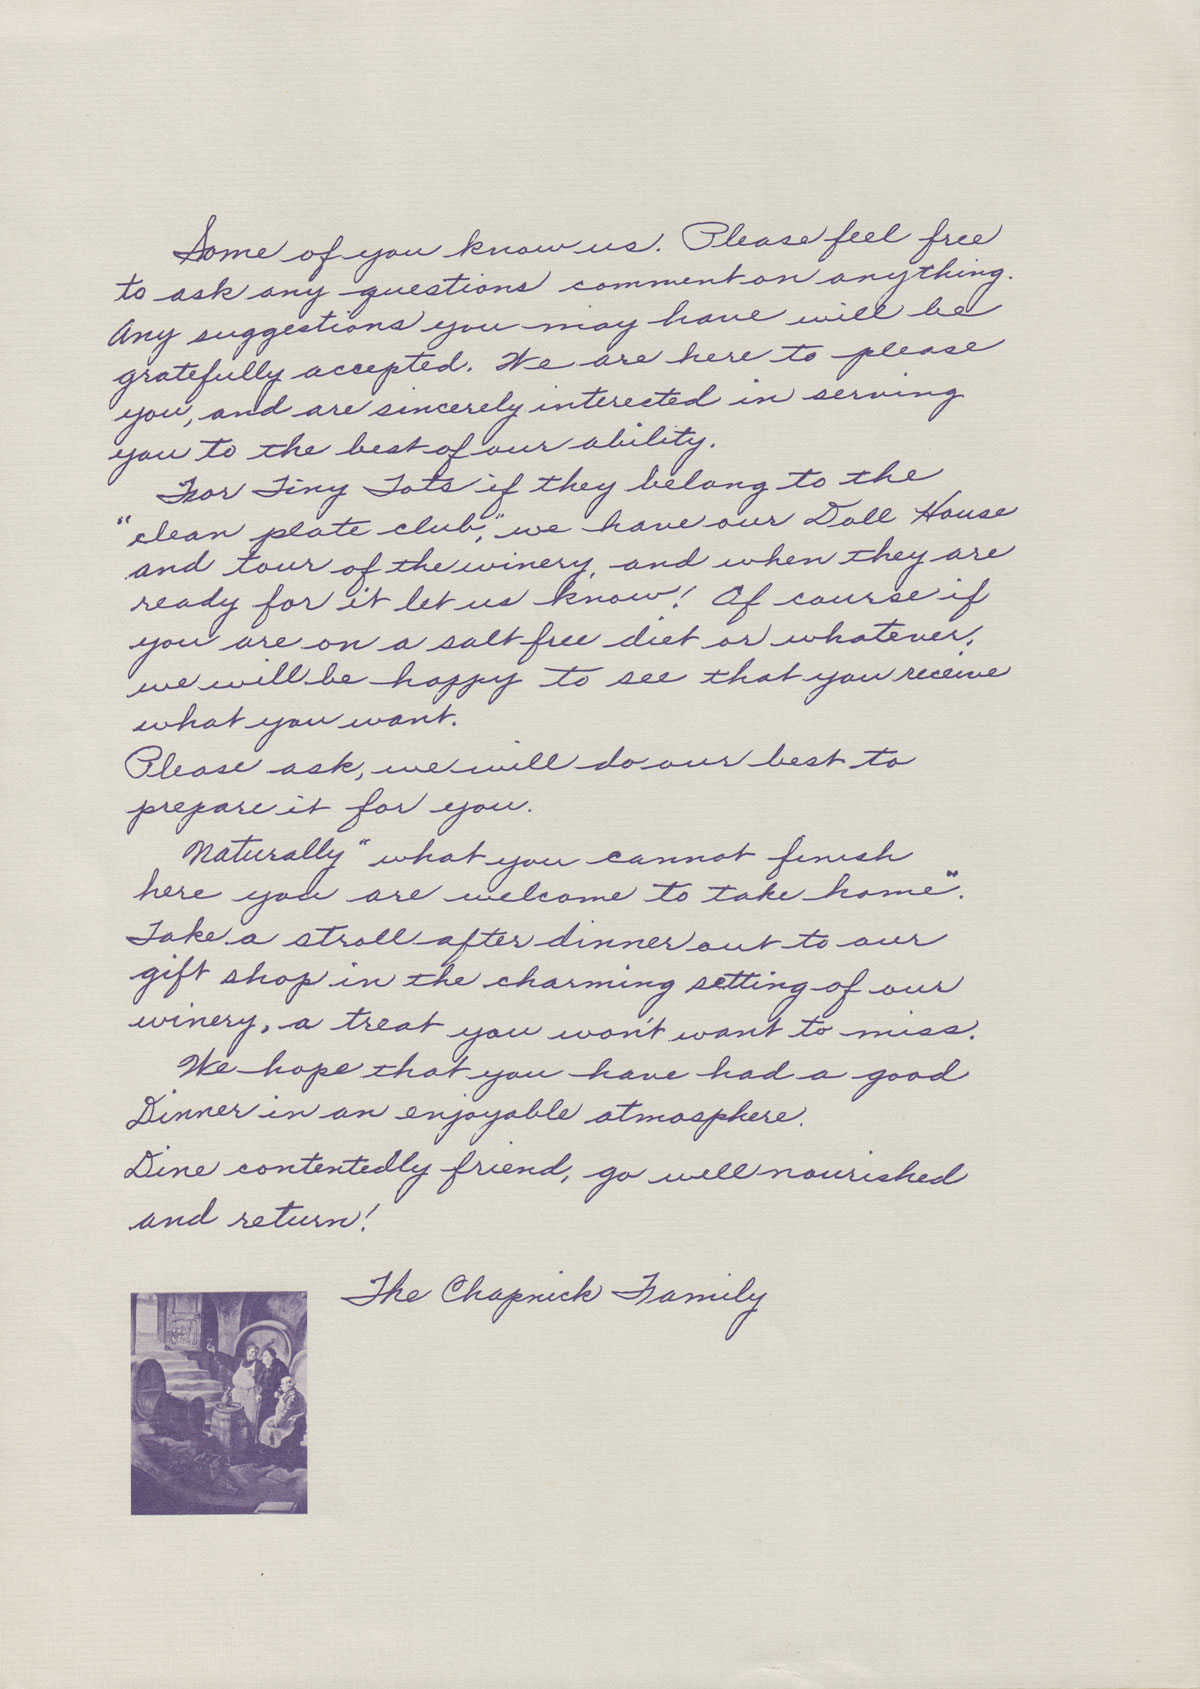 Some of you know us. Please feel free
to ask any questions comment on anything.
Any suggestions you may have will be
gratefully accepted. We are here to please
you, and are sincerely interested in serving
you to the best of our ability.
For Tiny Tots if they belong to the
"clean plate club," we have our Doll House
and tour of the winery, and when they are
ready for it let us know! Of course if
you are on a salt free diet or whatever,
we will be happy to see that you receive
what you want.
Please ask, we will do our best to
prepare it for you.
Naturally "what you cannot finish
here you are welcome to take home".
Take a stroll after dinner out to our
gift shop in the charming setting of our
winery, a treat you won't want to miss.
We hope that you have had a good
Dinner in an enjoyable atmosphere.
Dine contentedly friend, go well nourished
and return!
The Chapnick Family